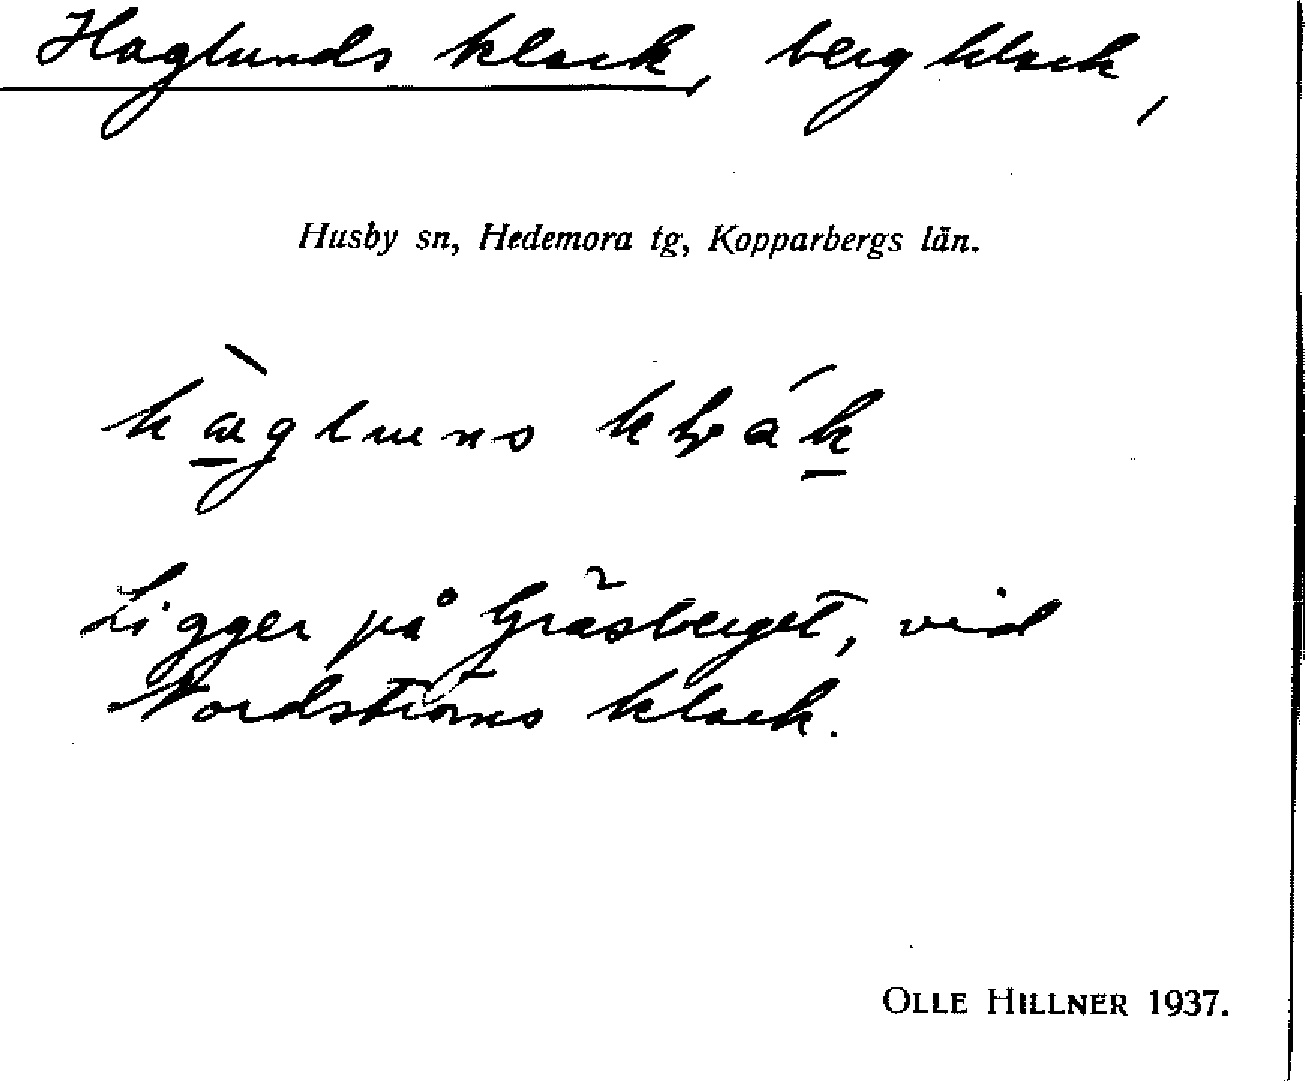 Haglunds klack, bergklack,
Husby sn, Hedemora tg, Kopparbergs län.
Ligger på Gräsberget, vid
Nordströms klack.
OLLE HILLNER 1937.